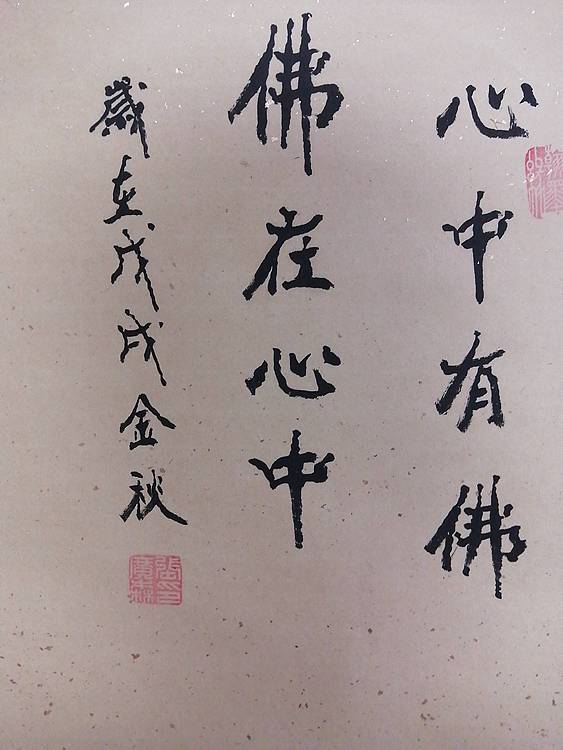 心中有佛
佛在心中
歲在戊戌金秋